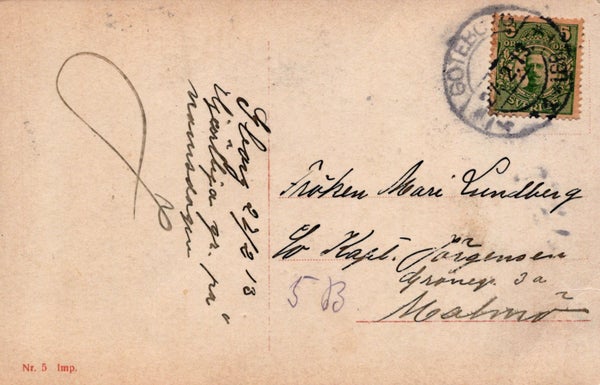 Gborg 27/2 13
Hjärtliga gr. på
namnsdagen
Fröken Mari Lundberg
c/o Kapt. Jörgensen
Gröneg. 3a
Malmö
5 B
GÖTEBORG
5
SVERIGE
Nr. 5 Imp.